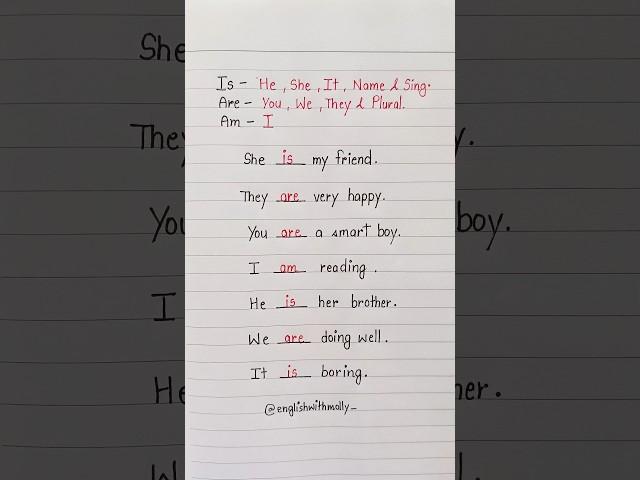 Is - He, She, It, Name & Sing.
Are - You, We, They & Plural.
Am - I
She is my friend.
They are very happy.
You are a smart boy.
I am reading.
He is her brother.
We are doing well.
It is boring.
@englishwithmolly_